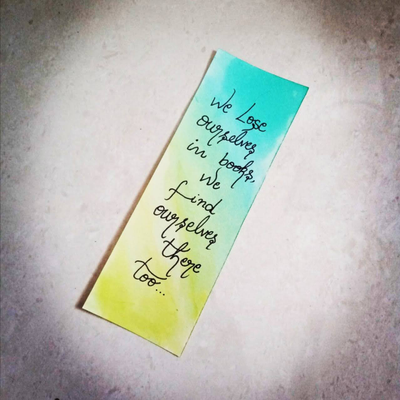 We Lose
ourselves
in books,
we
find
ourselves
there
too...